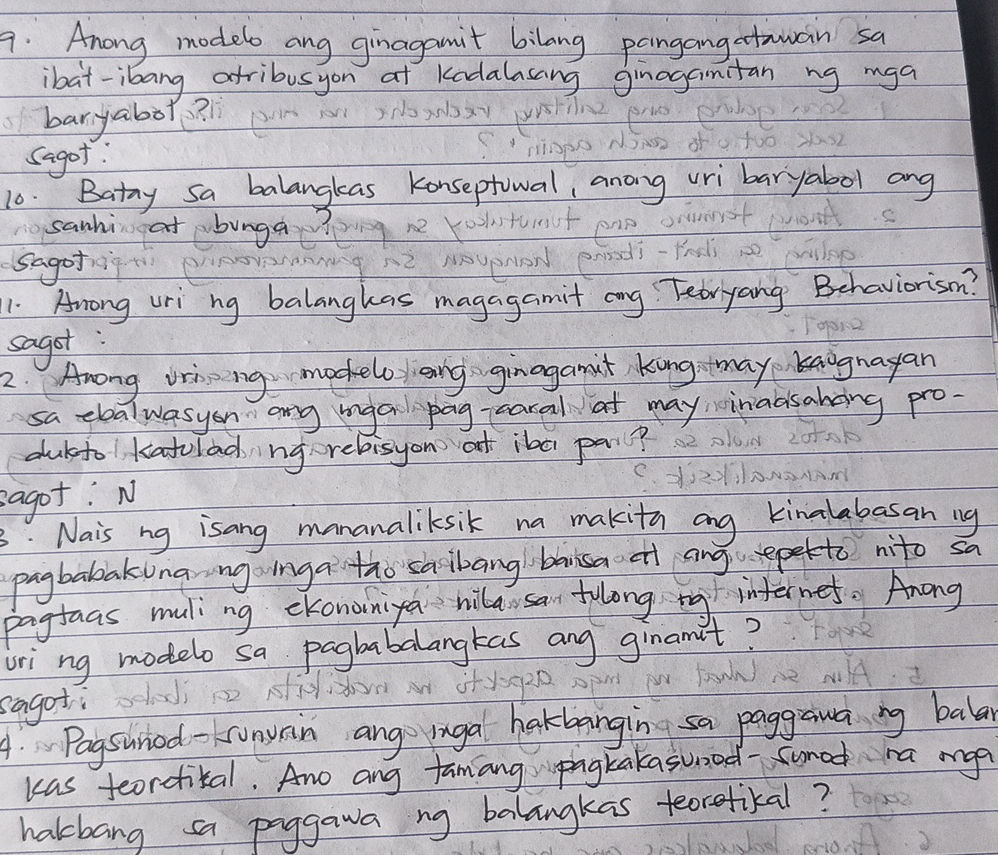 9. Anong modelo ang ginagamit bilang pangangatawan sa
ibat-ibang atribusyon at kadalasang ginagamitan ng mga
baryabol?
sagot:
10. Batay sa balangkas konseptuwal, anong uri baryabol ang
sanhi at bunga?
sagot
11. Anong uri ng balangkas magagamit ang Teoryang Behaviorism?
sagot:
2. Anong uri ng modelo ang ginagamit kung may kaugnayan
sa ebalwasyon ang mga pag-aaral at may inaasahang pro-
dukto katulad ng rebisyon at iba pa?
sagot: N
3. Nais ng isang mananaliksik na makita ang kinalabasan ng
pagbabakuna ng mga tao sa ibang bansa at ang epekto nito sa
pagtaas muli ng ekonomiya nila sa tulong ng internet. Anong
uri ng modelo sa pagbabalangkas ang ginamit?
sagot:
4. Pagsunod-sunurin ang mga hakbangin sa paggawa ng balan
kas teoretikal. Ano ang tamang pagkakasunod-sunod na mga
hakbang sa paggawa ng balangkas teoretikal?